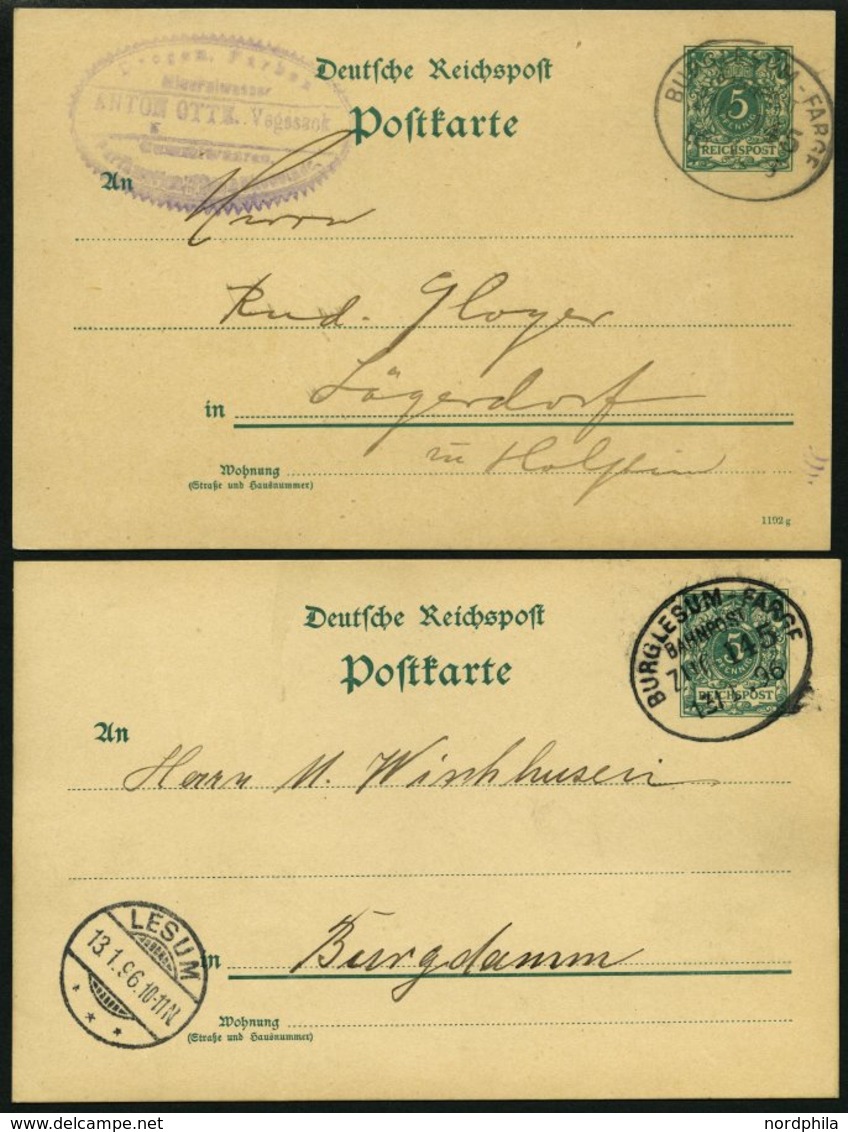 Drogen, Farben
Mineralwasser
ANTON OTTE, Vegesack
Gummiwaaren,
Deutsche Reichspost
Postkarte
BURGLESUM-FARGE
5
PFENNIG
REICHSPOST
An
Herrn
Rud. Gloyer
in Lägerdorf
in Holstein
Wohnung
(Straße und Hausnummer)
1192 g
Deutsche Reichspost
Postkarte
BURGLESUM-FARGE
BAHNPOST
ZUG 145
13/1 96
5
PFENNIG
REICHSPOST
An
Herrn M. Wischhusen
LESUM
13.1.96.10-11N
in Burgdamm
Wohnung
(Straße und Hausnummer)
nordphila